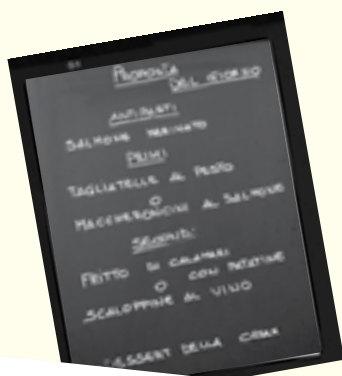 PROPOSTA
DEL GIORNO
ANTIPASTI
SALMONE MARINATO
PRIMI
TAGLIATELLE AL PESTO
O
MACCHERONCINI AL SALMONE
SECONDI:
FRITTO DI CALAMARI
O CON PATATINE
SCALOPPINE AL VINO
DESSERT DELLA CASA